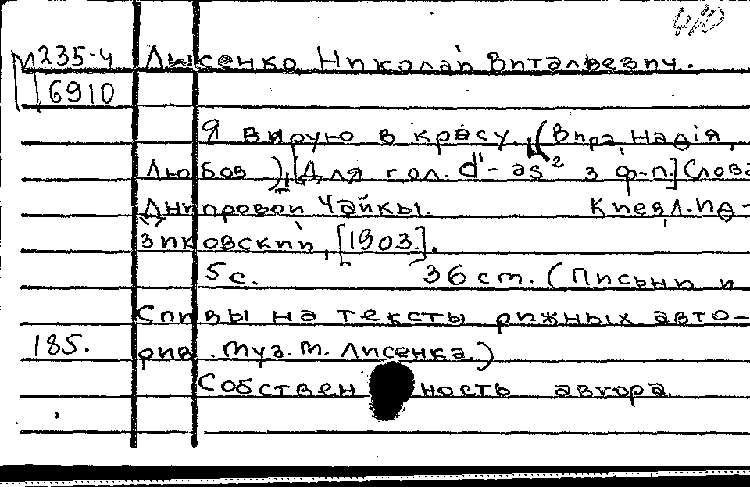 4/10
М235-4 Лысенко, Николай Витальевич.
6910
Я вирую в красу. (Вира, надія,
Любов), [Для гол. d¹-as² з ф-п] Слова
Днипровой Чайки. Киев, Л. Ид-
зиковский, [1903].
5 с. 36 cm. (Письни и
Спивы на тексты рижных авто-
185. рив. Муз. М. Лисенка.)
Собственность автора